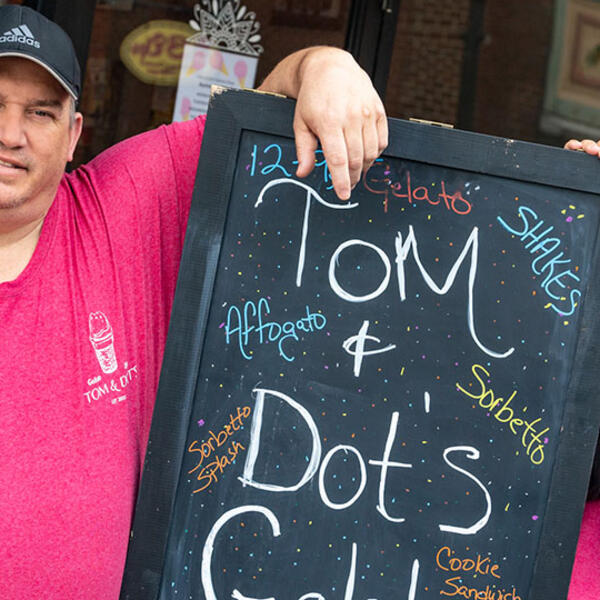 adidas
12-9
Gelato
SHAKES
TOM
&
Dot's
Affogato
Sorbetto
Sorbetto
Splash
Cookie
Sandwich
Gelato
TOM & DOT'S